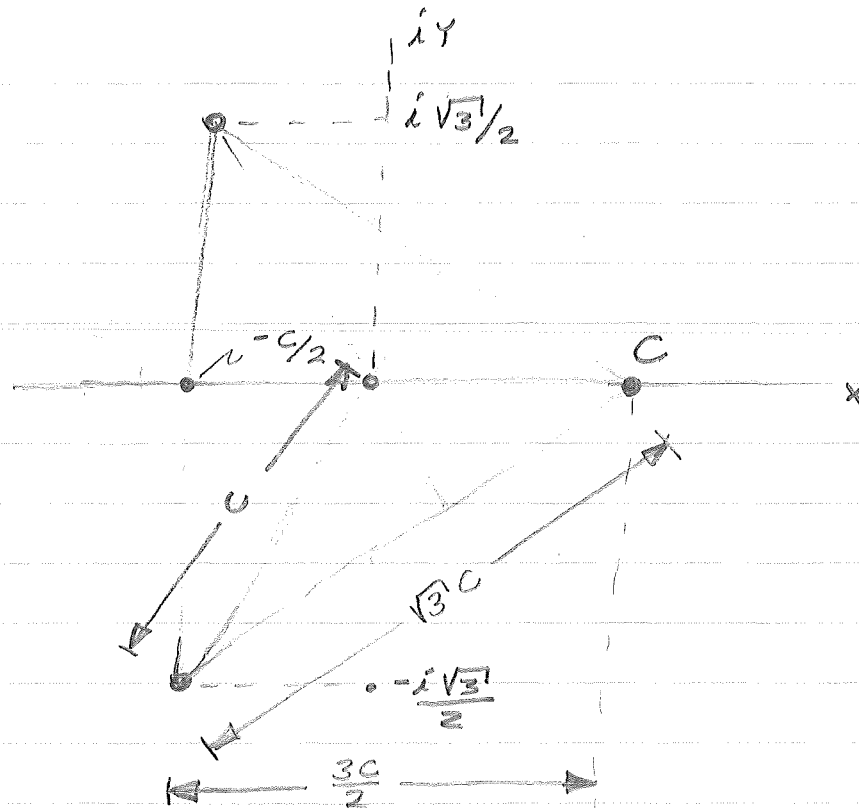 iY
i√3/2
-C/2
C
x
C
√3 C
-i√3/2
3C/2